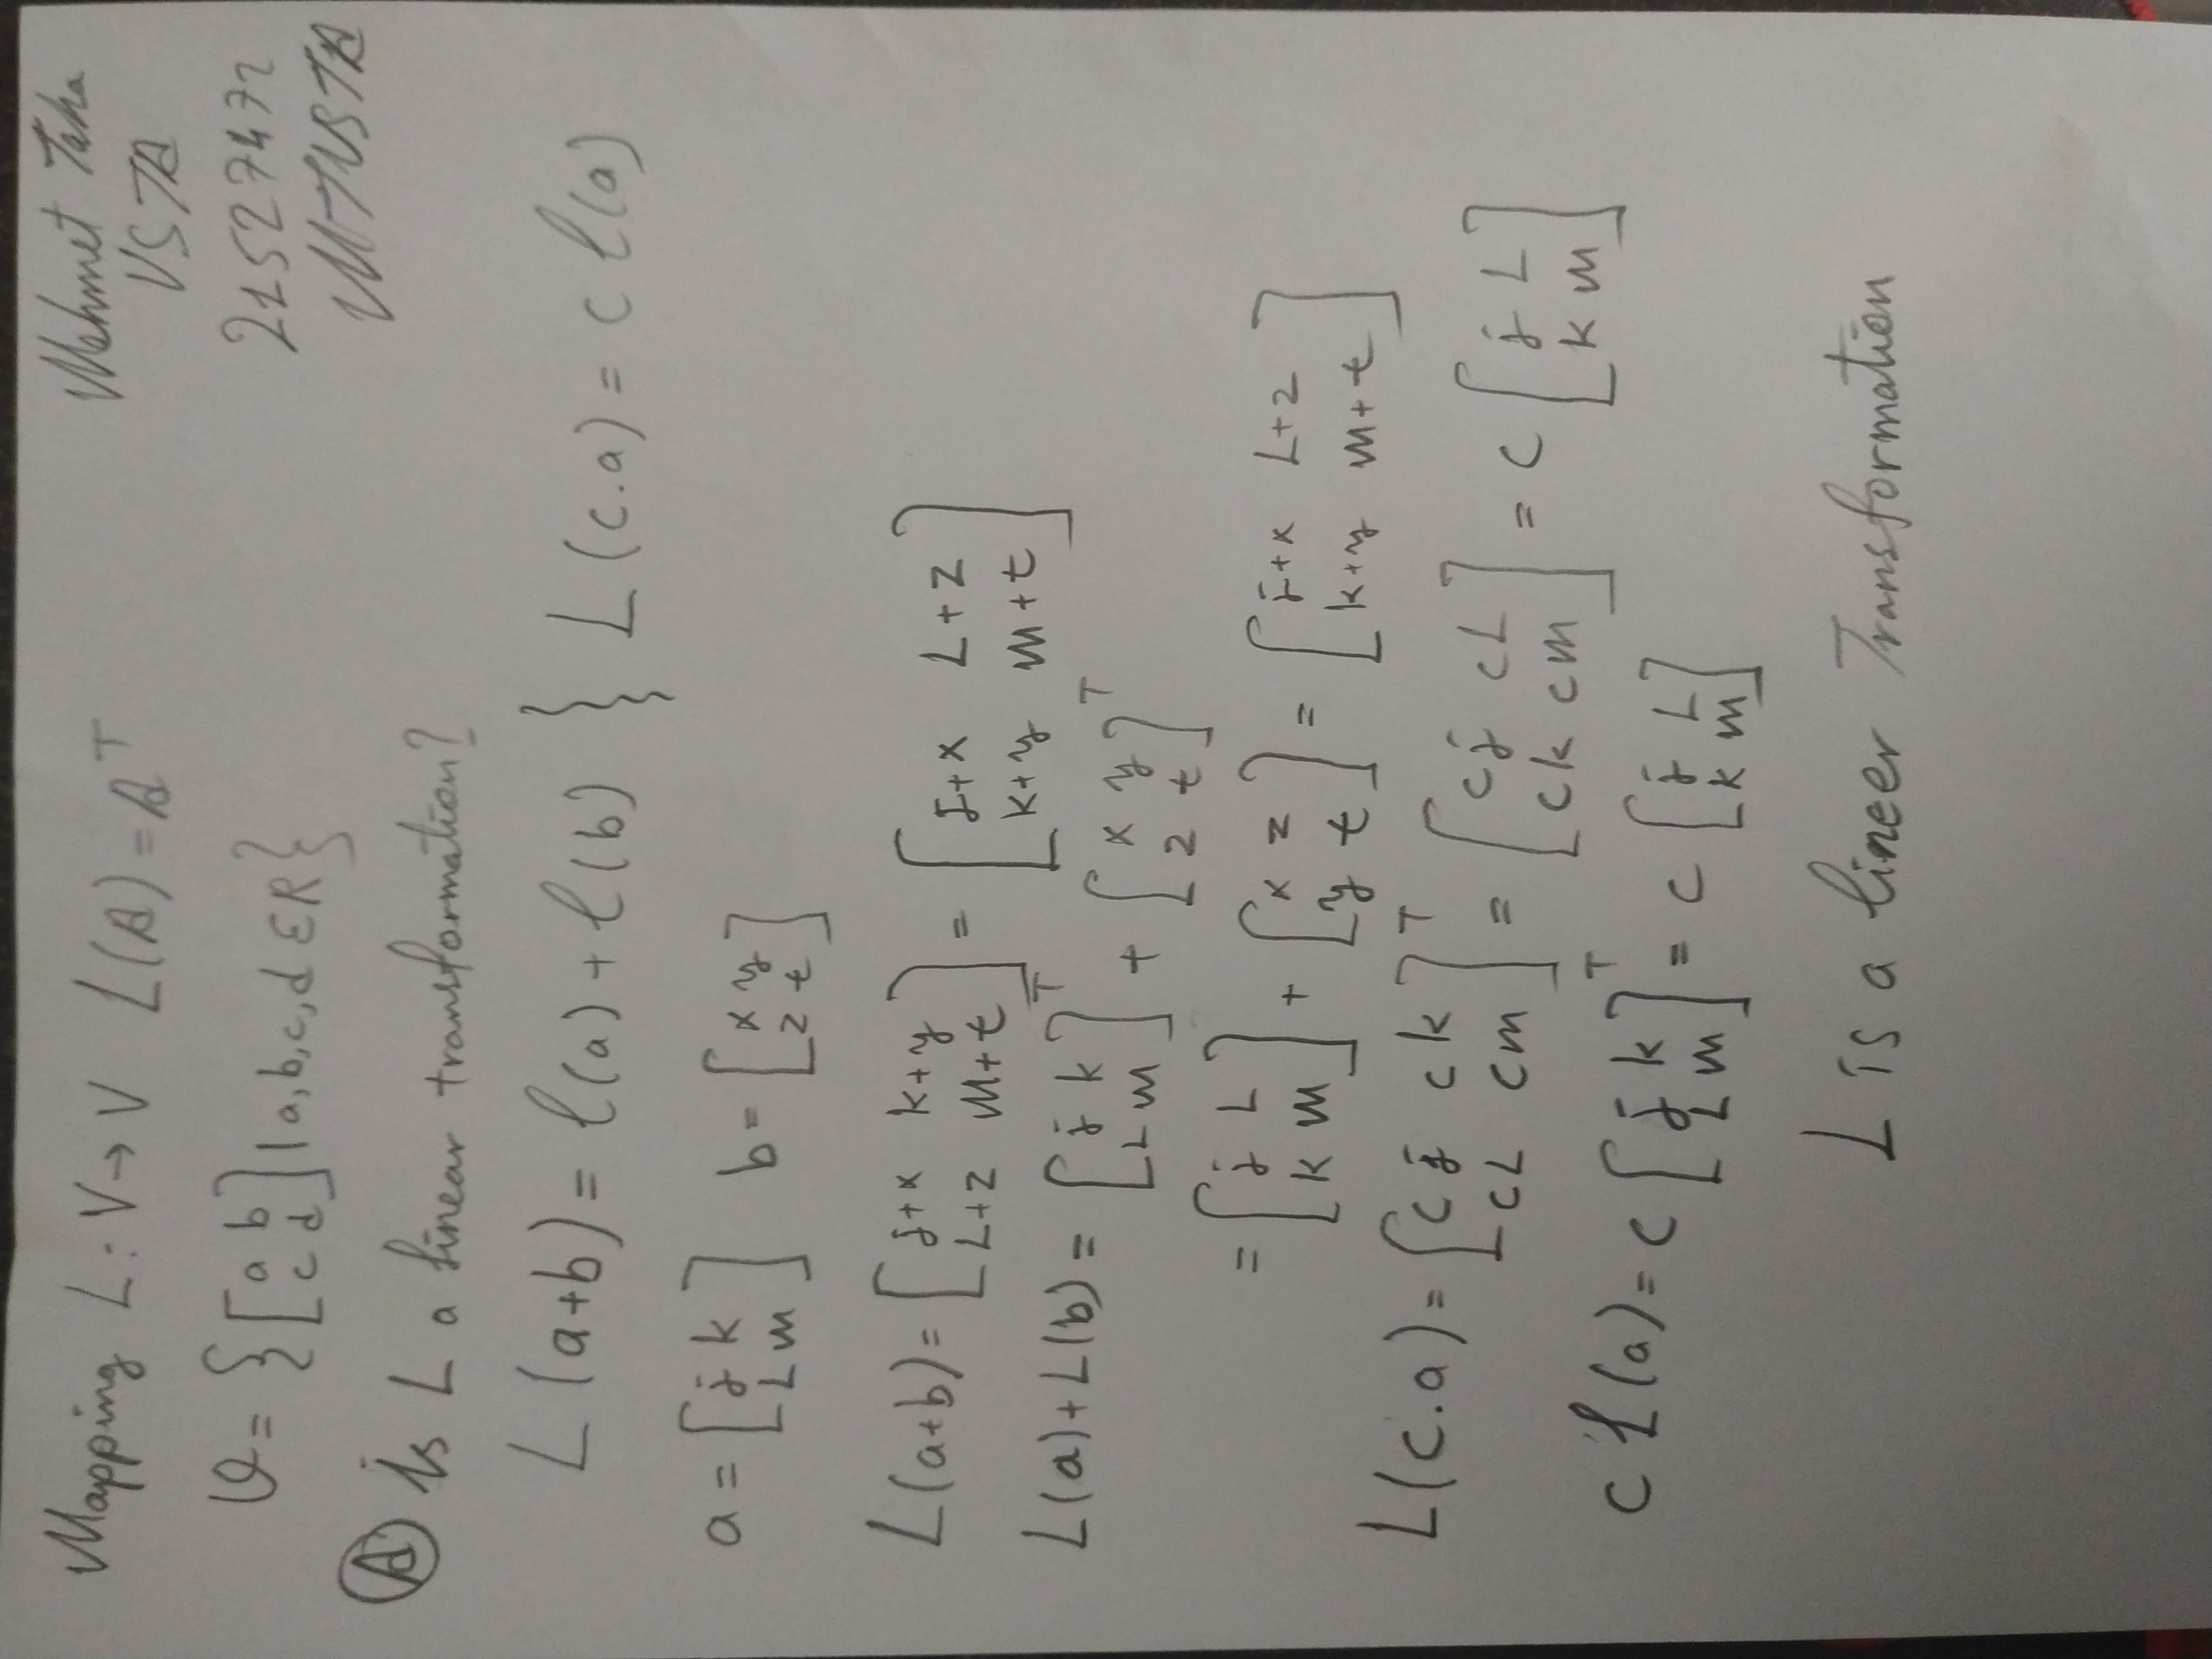 Mapping L : V → V L(A) = A^T
Mehmet Taha
USTA
21527472
MTUSTA
V = { [a b; c d] | a, b, c, d ∈ R }
(A) Is L a linear transformation?
L (a+b) = l(a) + l(b) } L (c.a) = c l(a)
a = [j k; L m] b = [x y; z t]
L(a+b) = [j+x k+y; L+z m+t] = [j+x L+z; k+y m+t]
L(a) + L(b) = [j k; L m]^T + [x y; z t]^T
= [j L; k m] + [x z; y t] = [j+x L+z; k+y m+t]
L(c.a) = [cj ck; cL cm]^T = [cj cL; ck cm] = c [j L; k m]
c l(a) = c [j k; L m]^T = c [j L; k m]
L is a lineer Transformation